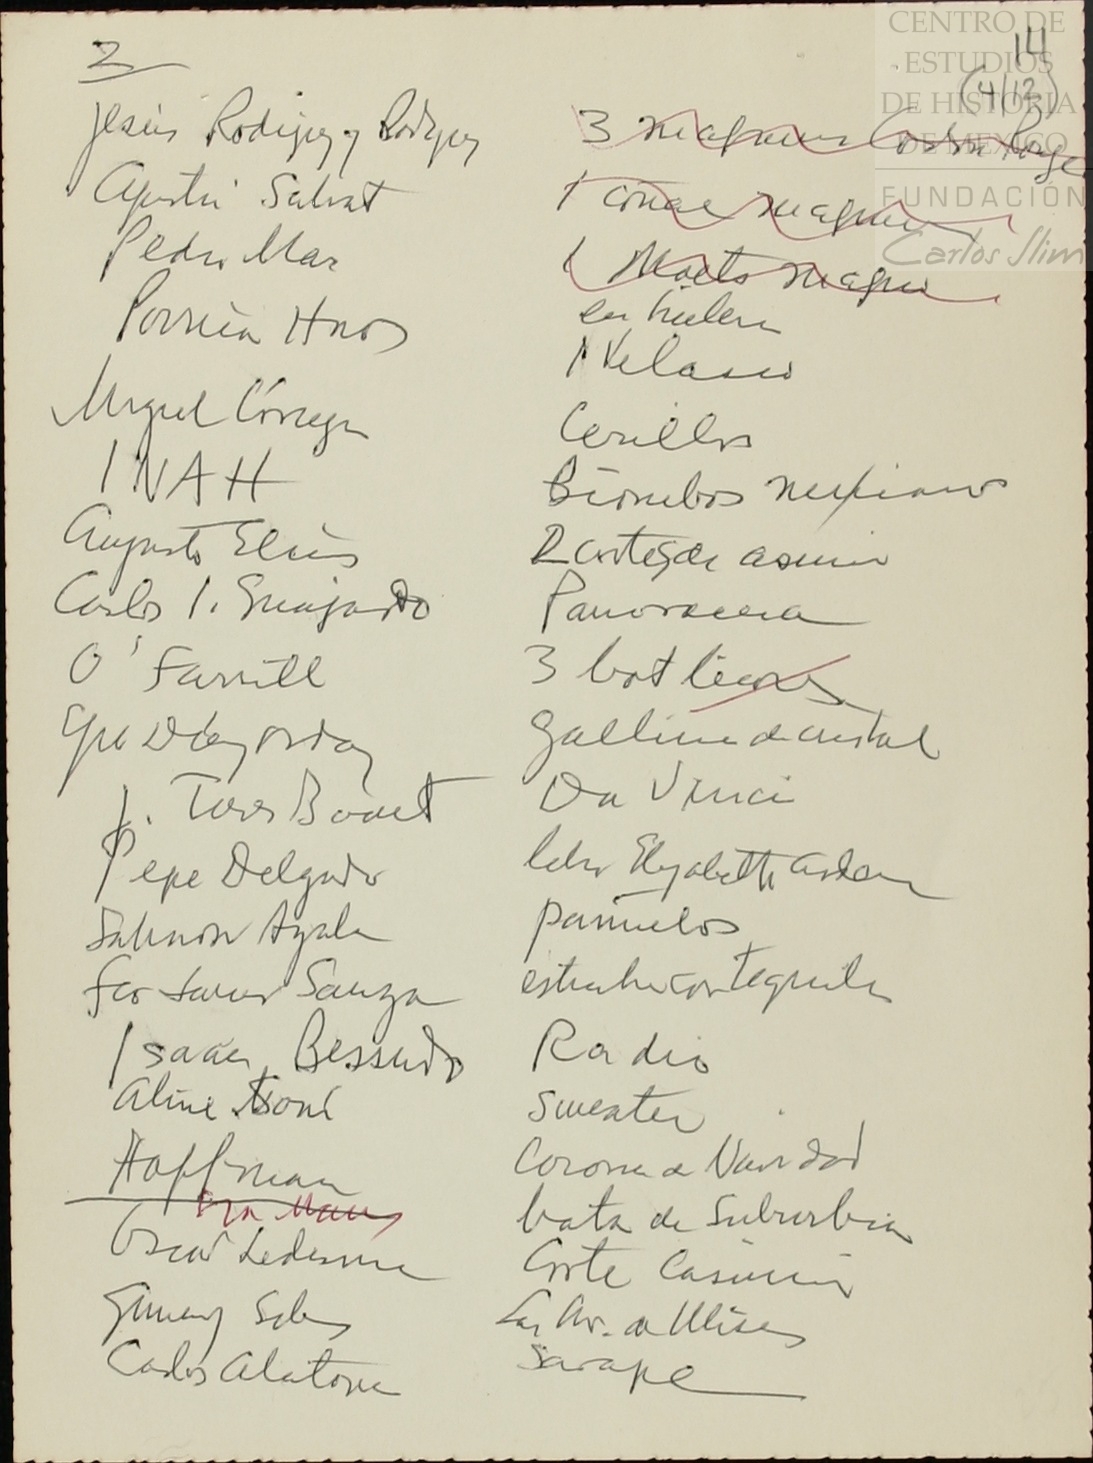 CENTRO DE
ESTUDIOS
DE HISTORIA
DE MEXICO
FUNDACIÓN
Carlos Slim
2
14
(4/12)
Jesús Rodríguez y Rodríguez 3 magnums
Agustín Salvat 1 magnum
Pedro Mar 1 Moets magnum
en hielera
Porrúa Hnos
1 Velasco
Miguel
Cerillos
INAH
Biombos mexicanos
Augusto Elías
2 cortes de casimir
Carlos I. Guajardo Panorama
O'Farrill 3 bot licores
Gpe Díaz Ordaz Gallina de cristal
J. Torres Bodet Da Vinci
Pepe Delgado Elizabeth Arden
Salomon Ayala pañuelos
Fco Javier Sauza con Tequila
Isaac Bessudo Radio
Aline sweater
Hoffman Corona de Navidad
bata de Suburbia
Oscar Ledesma Corte Casimir
Gimenez de Ulises
Carlos Alatorre Sarape